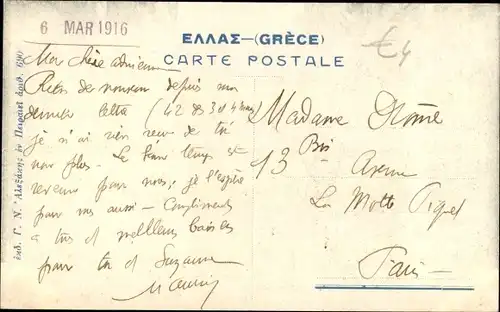 6 MAR 1916
ΕΛΛΑΣ—(GRÈCE)
CARTE POSTALE
£4
Ma chère adrienne
Rien de nouveau depuis ma
dernière lettre (42 de 3 et 4 mars)
je n'ai rien reçu de toi
non plus. Le beau temps est
revenu pour nous; je l'espère
pour vous aussi — Compliments
à tous et meilleurs baisers
pour toi et Suzanne
Madame Drôme
13 Bis Avenue
La Motte Piquet
Paris
ἐκδ. Γ. Ν. Ἀλεξάκης ἐν Πειραιεῖ ἀριθ. 690